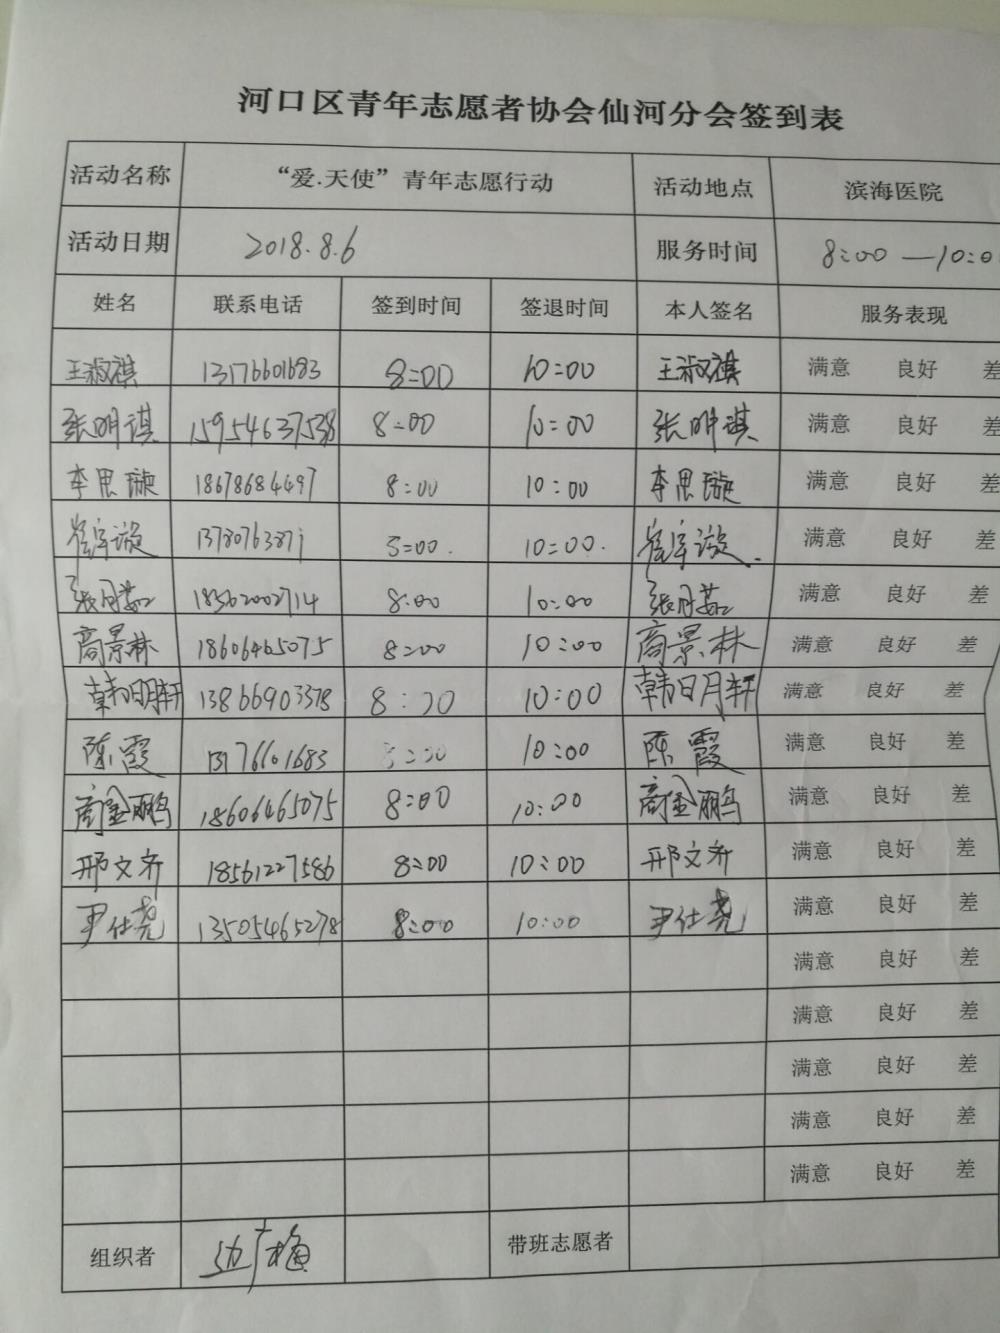 河口区青年志愿者协会仙河分会签到表
活动名称 “爱.天使”青年志愿行动 活动地点 滨海医院
活动日期 2018.8.6 服务时间 8:00 — 10:0
姓名 联系电话 签到时间 签退时间 本人签名 服务表现
王淑祺 13176601683 8:00 10:00 王淑祺 满意 良好 差
张明祺 15954637538 8:00 10:00 张明祺 满意 良好 差
李思璇 18678684497 8:00 10:00 李思璇 满意 良好 差
10:00. 满意 良好 差
张月茹 18562002714 8:00 10:00 张月茹 满意 良好 差
商景林 18606465075 8:00 10:00 商景林 满意 良好 差
韩明轩 13866903378 10:00 韩明轩 满意 良好 差
陈霞 13176601683 10:00 陈霞 满意 良好 差
商金鹏 18606465075 8:00 10:00 商金鹏 满意 良好 差
邢文齐 18561227586 8:00 10:00 邢文齐 满意 良好 差
尹仕尧 13505465278 8:00 10:00 尹仕尧 满意 良好 差
满意 良好 差
满意 良好 差
满意 良好 差
满意 良好 差
满意 良好 差
组织者 边广梅 带班志愿者